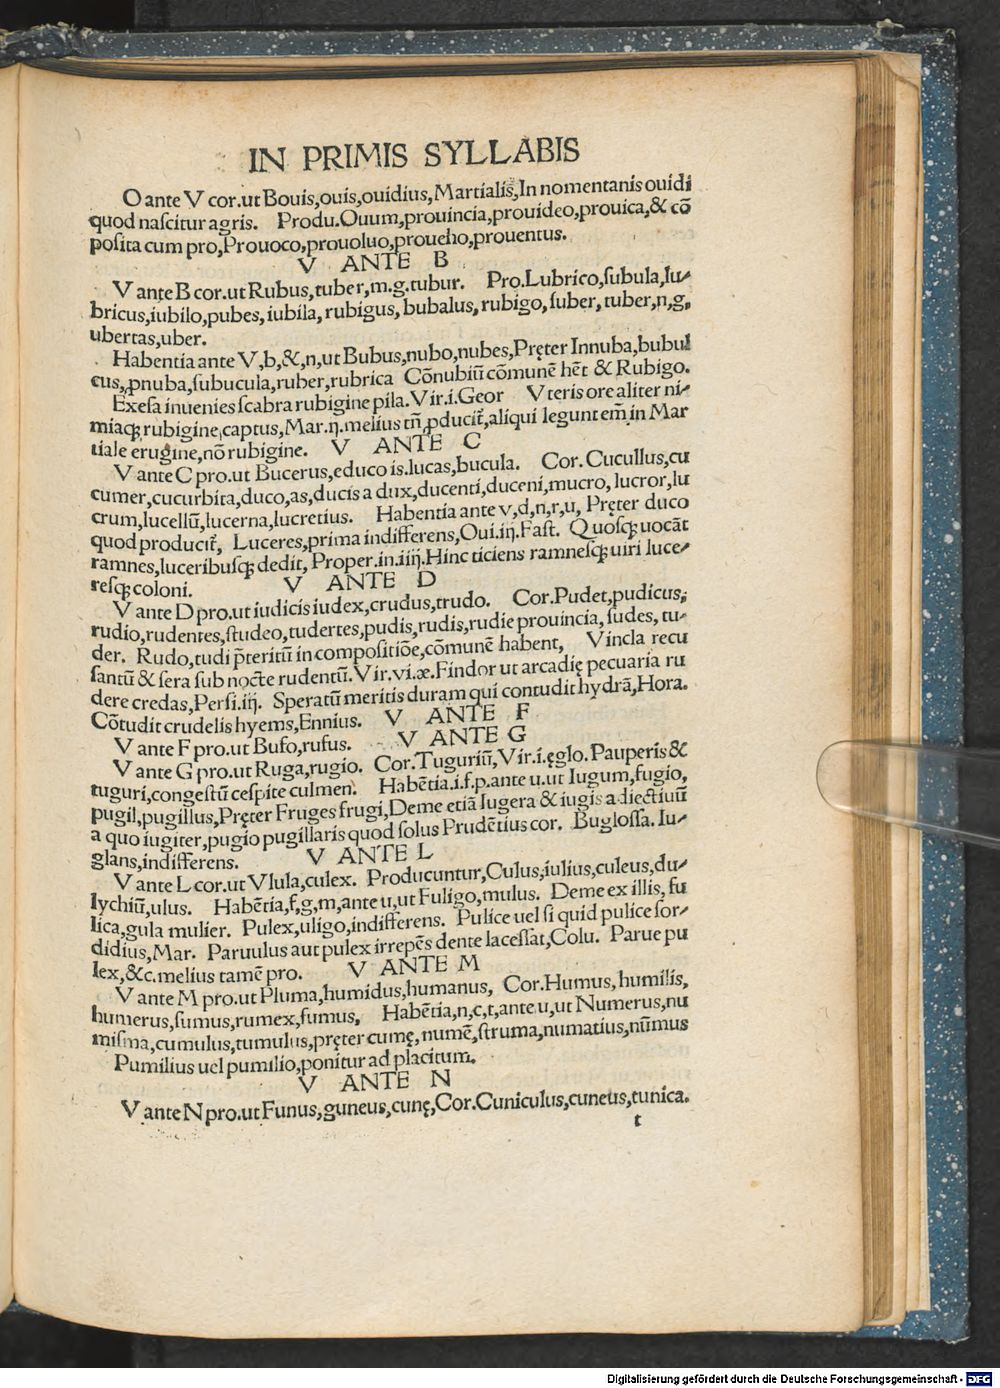 IN PRIMIS SYLLABIS
O ante V cor.ut Bouis,ouis,ouidius,Martialis,In nomentanis ouidi
quod naſcitur agris. Produ.Ouum,prouincia,prouideo,prouica,& cō
poſita cum pro,Prouoco,prouoluo,proueho,prouentus.
V ANTE B
V ante B cor.ut Rubus,tuber,m.g.tubur. Pro.Lubrico,ſubula,lu-
bricus,iubilo,pubes,iubila,rubigus,bubalus,rubigo,ſuber,tuber,n,g,
ubertas,uber.
Habentia ante V,b,&,n,ut Bubus,nubo,nubes,Pręter Innuba,bubul
cus,ꝓnuba,ſubucula,ruber,rubrica Cōnubiū cōmunē hēt & Rubigo.
Exeſa inuenies ſcabra rubigine pila.Vir.i.Geor Vteris ore aliter ni-
miaqꝫ rubigine captus,Mar.ij.melius tñ ꝓducit̃,aliqui legunt em̄ in Mar
tiale erugine,nō rubigine. V ANTE C
V ante C pro.ut Bucerus,educo is.lucas,bucula. Cor.Cucullus,cu
cumer,cucurbita,duco,as,ducis a dux,ducenti,duceni,mucro, lucror,lu
crum,lucellū,lucerna,lucretius. Habentia ante v,d,n,r,u, Pręter duco
quod producit̃, Luceres,prima indifferens,Oui.iij.Faſt. Quoſqꝫ uocāt
ramnes,luceribuſqꝫ dedit, Proper.in.iiij.Hinc ticiens ramneſqꝫ uiri luce-
reſqꝫ coloni. V ANTE D
V ante D pro.ut iudicis iudex,crudus,trudo. Cor.Pudet,pudicus,
rudio,rudentes,ſtudeo,tudertes,pudis,rudis,rudie prouincia, ſudes, tu-
der. Rudo,tudi p̄teritū in compoſitiōe,cōmunē habent, Vincla recu
ſantū & ſera ſub nocte rudentū.Vir.vi.æ.Findor ut arcadię pecuaria ru
dere credas,Perſi.iij. Speratū meritis duram qui contudit hydrā,Hora.
Cōtudit crudelis hyems,Ennius. V ANTE F
V ante F pro.ut Bufo,rufus. V ANTE G
V ante G pro.ut Ruga,rugio. Cor.Tuguriū,Vir.i.ęglo.Pauperis &
tuguri,congeſtū ceſpite culmen. Habētia.i.f.p.ante u.ut Iugum,fugio,
pugil,pugillus,Pręter Fruges frugi,Deme etiā Iugera & iugis adiectiuū
a quo iugiter,pugio pugillaris quod ſolus Prudētius cor. Bugloſſa. Iu-
glans,indifferens. V ANTE L
V ante L cor.ut Vlula,culex. Producuntur,Culus,iulius,culeus,du-
lychiū,ulus. Habētia,f,g,m,ante u,ut Fuligo,mulus. Deme ex illis, fu
lica,gula mulier. Pulex,uligo,indifferens. Pulice uel ſi quid pulice ſor-
didius,Mar. Paruulus aut pulex irrepēs dente laceſſat,Colu. Parue pu
lex,&c.melius tamē pro. V ANTE M
V ante M pro.ut Pluma,humidus,humanus, Cor.Humus,humilis,
humerus,ſumus,rumex,fumus, Habētia,n,c,t,ante u,ut Numerus,nu
miſma,cumulus,tumulus,pręter cumę,numē,ſtruma,numatius,nūmus
Pumilius uel pumilio,ponitur ad placitum.
V ANTE N
V ante N pro.ut Funus,guneus,cunę,Cor.Cuniculus,cuneus,tunica.
t
Digitalisierung gefördert durch die Deutsche Forschungsgemeinschaft - DFG